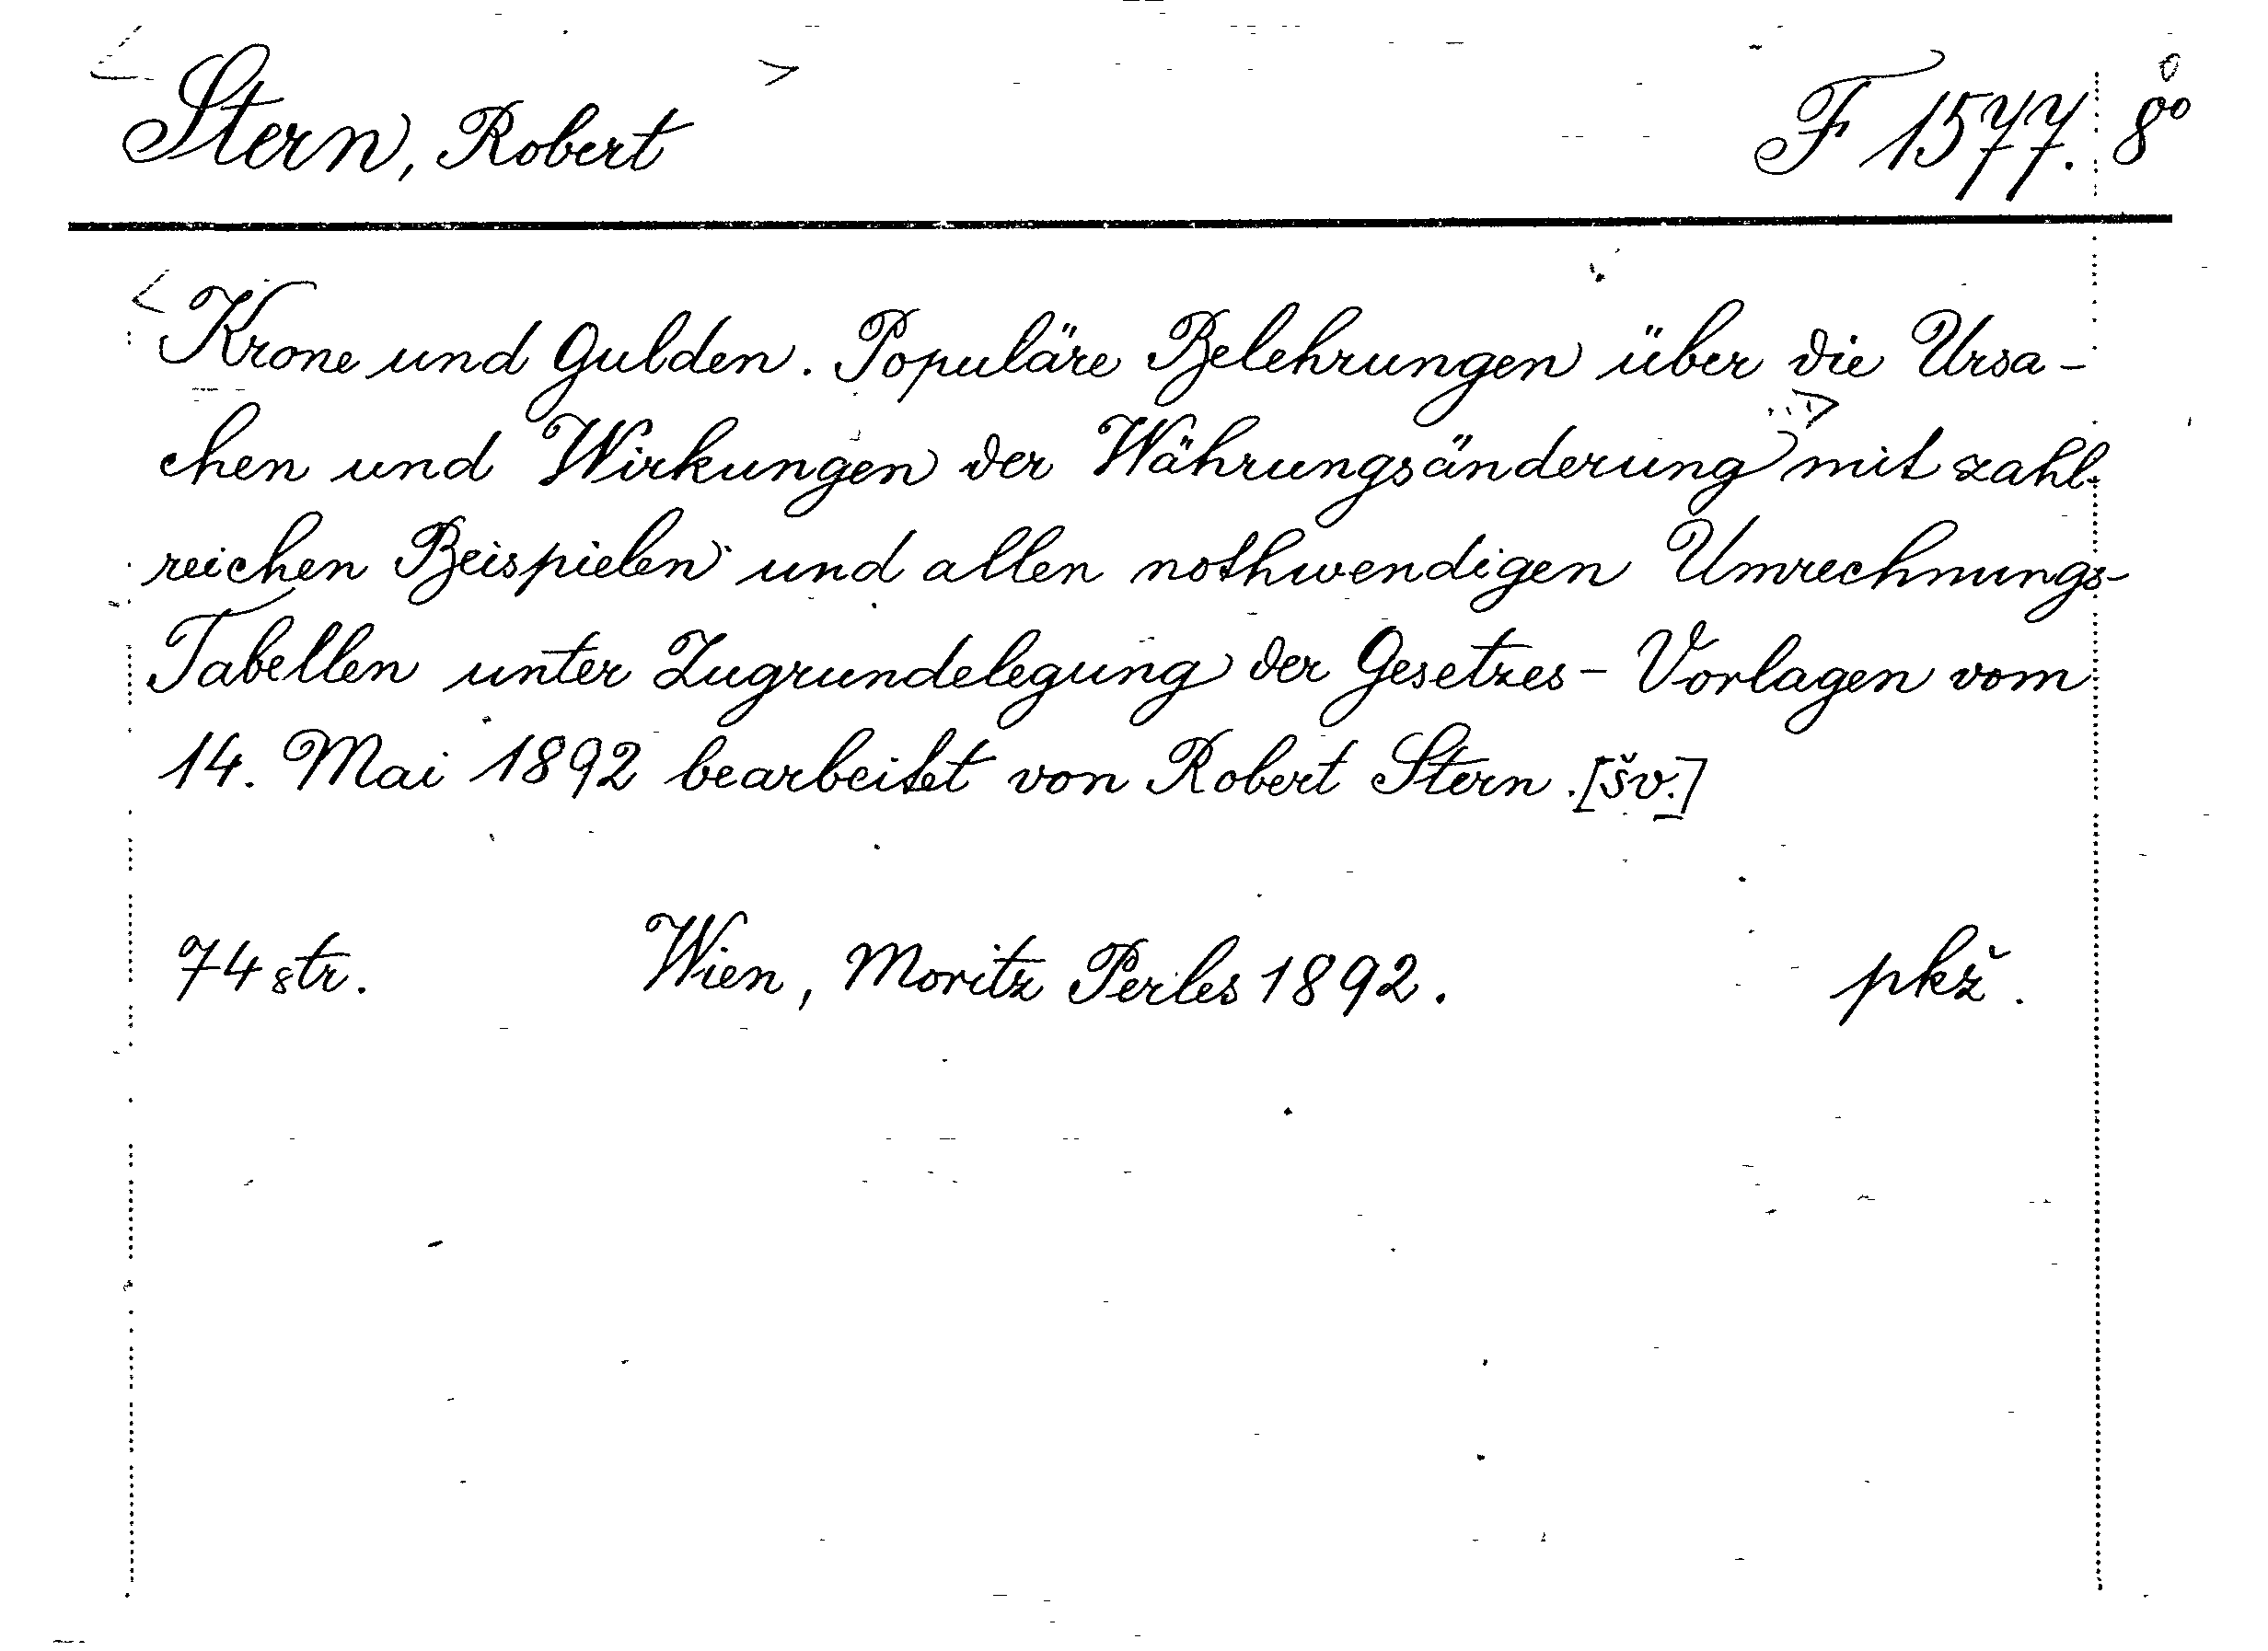 Stern, Robert F 1577. 8°
Krone und Gulden. Populäre Belehrungen über die Ursa-
chen und Wirkungen der Währungsänderung mit zahl-
reichen Beispielen und allen nothwendigen Umrechnungs-
Tabellen unter Zugrundelegung der Gesetzes-Vorlagen vom
14. Mai 1892 bearbeitet von Robert Stern. [šv.]
74 str. Wien, Moritz Perles 1892. pkž.